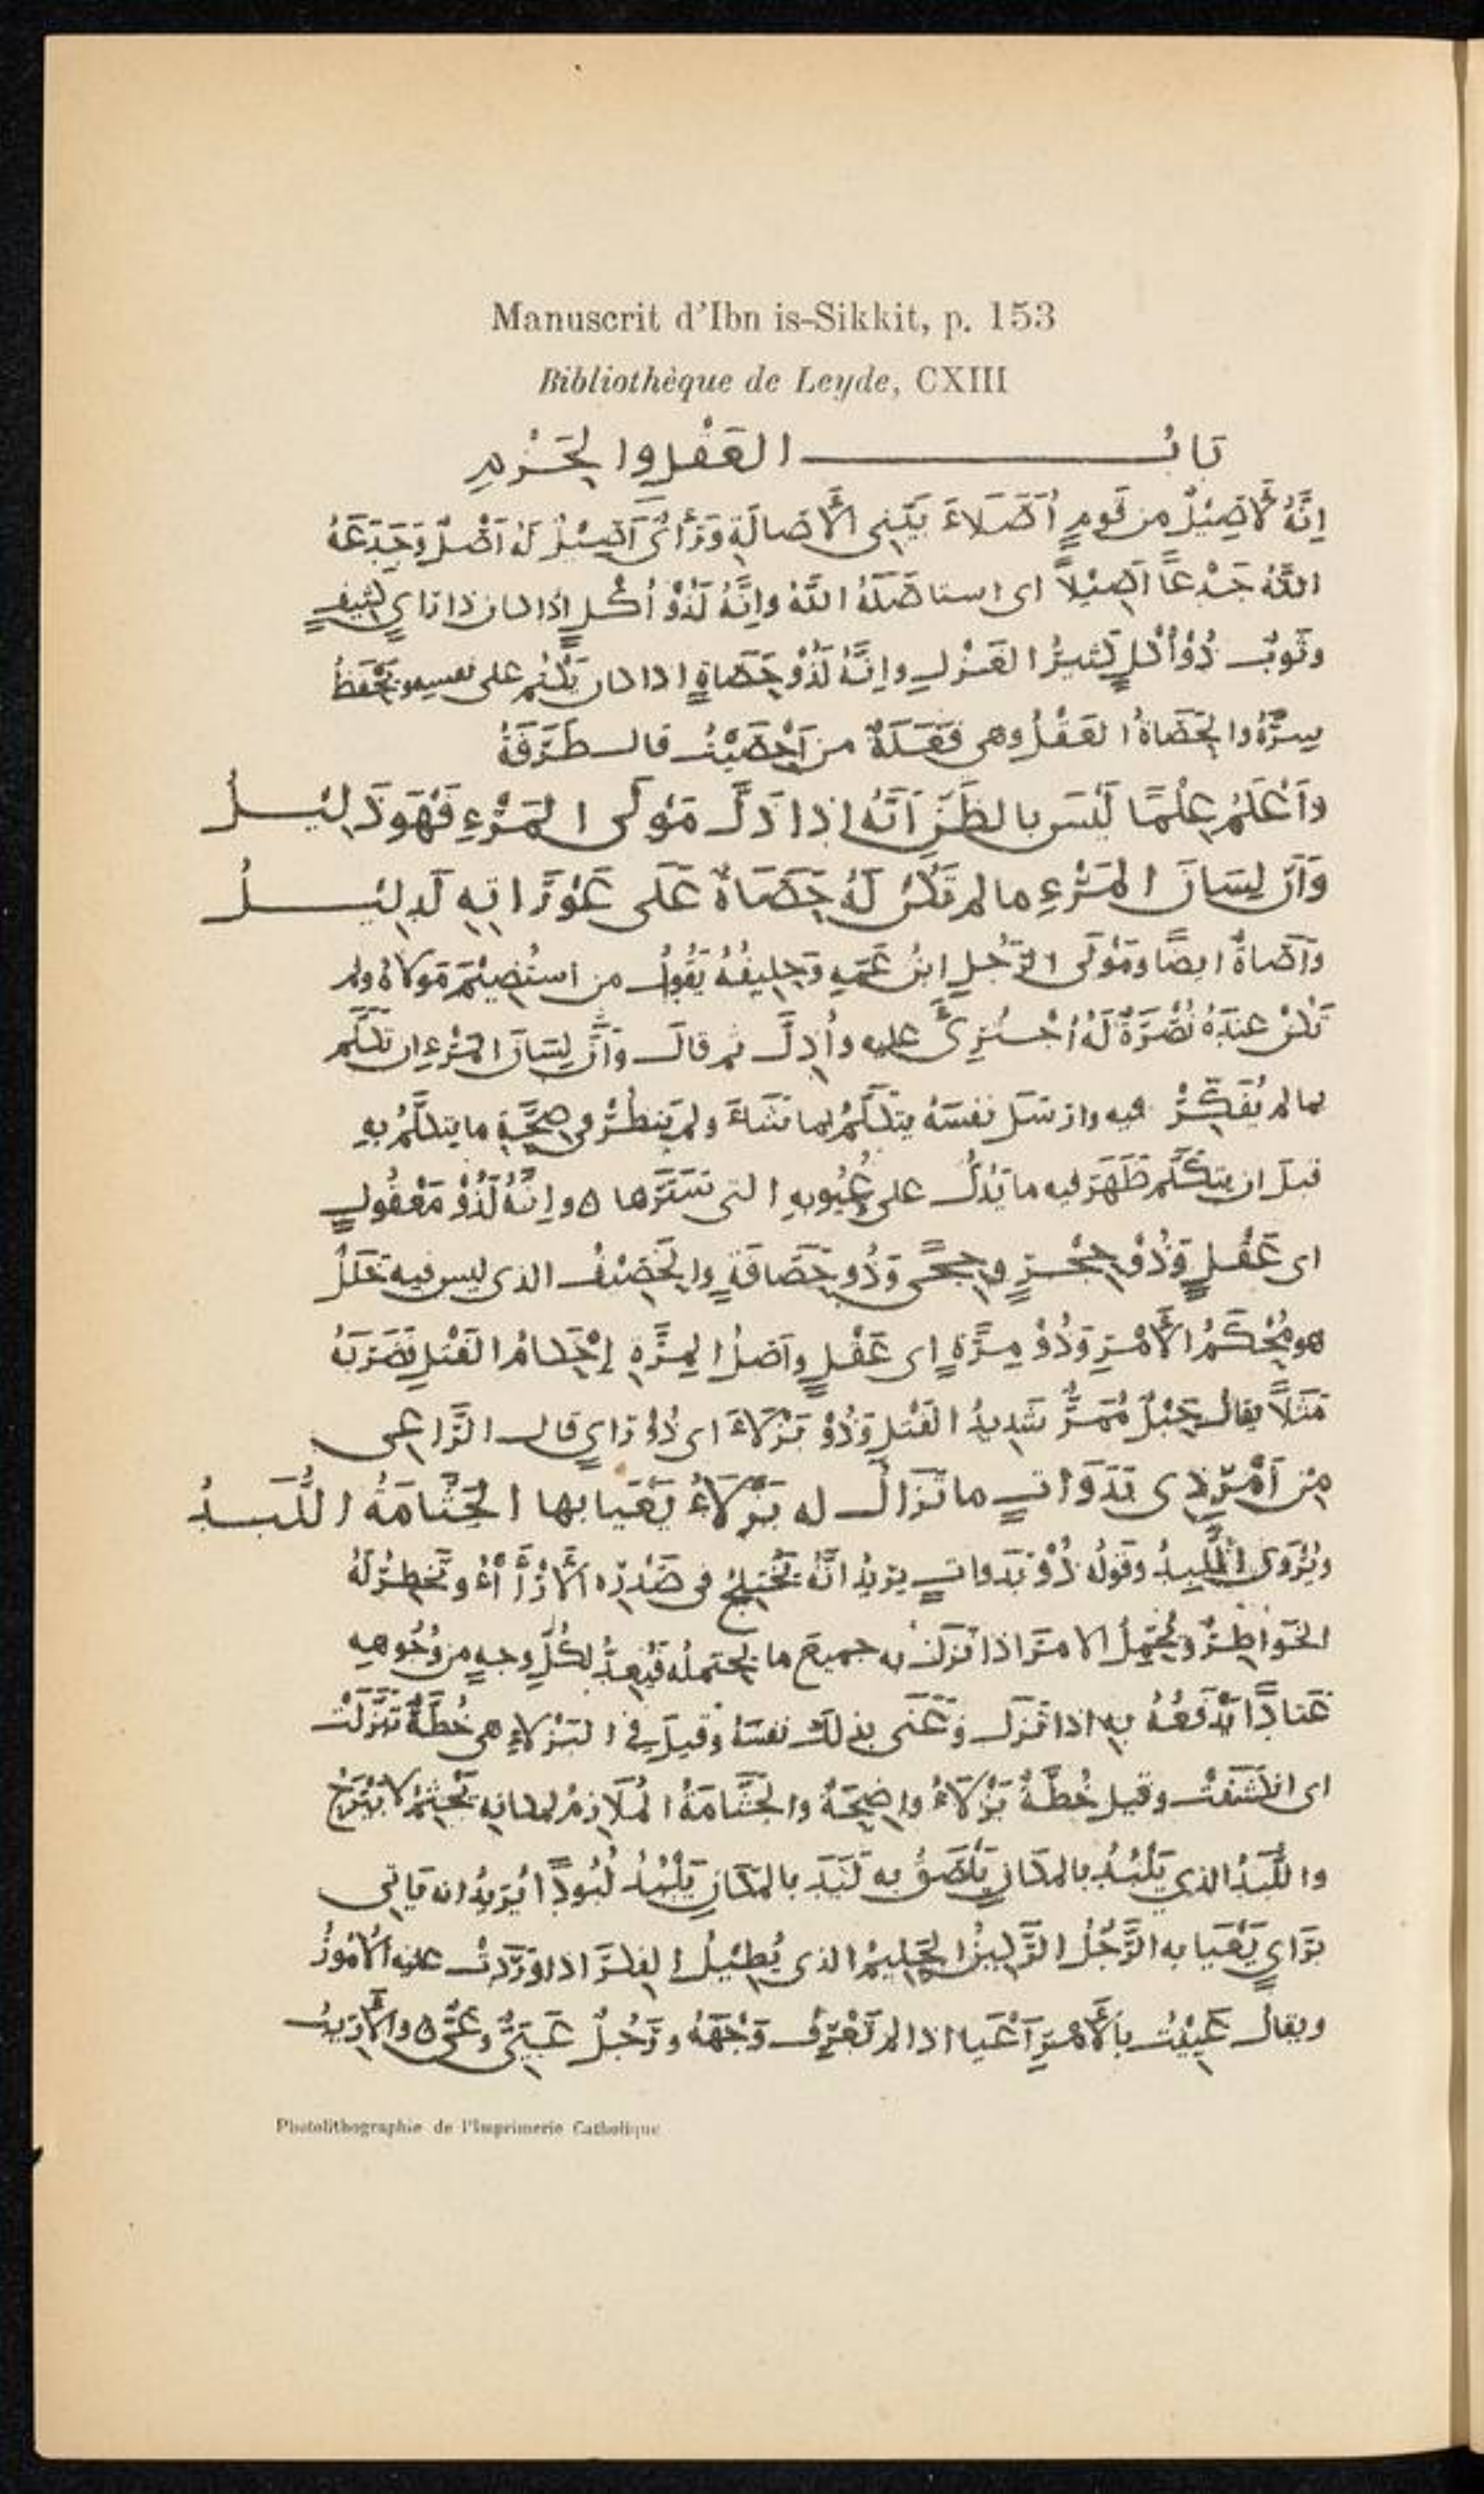 Manuscrit d'Ibn is-Sikkit, p. 153
Bibliothèque de Leyde, CXIII
بَابُ العَقْلِ والحَزْمِ
اِنَّهُ لَأَصِيْلٌ من قَومٍ اُصَلاءَ بَيِّنِي الأَصَالَةِ وَرَأْيٌ اَصِيْلٌ لَهُ اَصْلٌ وَجَدَعَهُ
اللّهُ جَدْعًا اَصِيْلاً اى استاصَلَهُ اللّهُ واِنَّهُ لَذُوْ اُكْلٍ اِذا كان ذا رَايٍ كَثِيفٍ
وثَوبٌ ذُوْ اُكْلٍ كَثيرُ الغَزْلِ واِنَّهُ لَذُوْ حَصَاةٍ اذا كان يَكْتُم على نفسِهِ ويَحْفَظُ
سِرَّهُ والحَصَاةُ العَقْلُ وهى فَعَلَةٌ من اَحْصَيْتُ قالَ طَرَفَةُ
وَاَعْلَمُ عِلْمًا لَيْسَ بالظَنِّ اَنَّهُ اِذا ذَلَّ مَوْلَى المَرْءِ فَهْوَ ذَلِيْلُ
وَاَنَّ لِسَانَ المَرْءِ ما لم تَكُنْ لَهُ حَصَاةٌ عَلَى عَوْرَاتِهِ لَدلِيْلُ
وَاَصَاةٌ ايضًا ومَوْلَى الرَّجُلِ ابنُ عَمِّهِ وَحَلِيفُهُ يَقُولُ من استُضِيْمَ مَولاهُ ولم
تَكُنْ عِندَهُ نُصْرَةٌ لَهُ اُجْتُرِئَ عليه واُذِلَّ ثم قالَ وَاَنَّ لِسَانَ المَرْءِ ان تَكَلَّم
بما لم يُفَكِّرْ فيه وارسَلَ نفسَهُ يتكَلَّمُ بما تَشَاءَ ولم يَنظُرْ فى صِحَّةِ ما يتكلَّمُ بِهِ
قبلَ ان يتكَلَّم ظَهَرَ فيه ما يَدُلُّ على عُيُوبِهِ التى تسَتَّرَها ه واِنَّهُ لَذُوْ مَعْقُولٍ
اى عَقْلٍ وَذُوْ حِجْرٍ وحِجًى وَذُو حَصَافَةٍ والحَصِيْفُ الذى ليس فيه خَلَلٌ
هو مُحْكَمُ الأَمْرِ وَذُوْ مِرَّةٍ اى عَقْلٍ واَصْلُ المِرَّةِ اِحْكامُ الفَتْلِ فَضَرَبَهُ
مَثَلاً يقالُ حَبْلٌ مُمَرٌّ شَدِيدُ الفَتْلِ وَذُوْ بَزْلاءَ اى ذُوْ رَايٍ قالَ الرَّاعِى
مِن اَمْرِ ذِى بَدَوَاتٍ ما تَزَالُ له بَزْلاءُ يَعْيَا بها الجَثَّامَةُ اللُّبَدُ
ويُرْوَى اللَّبِدُ وقَولُهُ ذُوْ بَدَواتٍ يريدُ انَّهُ تَخْتَلِجُ فى صَدْرِهِ الآرْأَاءُ وتَخطِرُ لَهُ
الخَوَاطِرُ ويُحتَمِلُ الامرَ اذا نَزَلَ به جميعَ ما يحتملُه فيُعِدُّ لِكُلِّ وجهٍ من وُجُوهِهِ
عَتَادًا يَدْفَعُهُ بِهِ اذا نَزَلَ وَعَنَى بذلك نفسَهُ وقِيلَ في البَزْلاءِ هى خُطَّةٌ تَبَزَّلَتْ
اى انكَشَفَتْ وقيل خُطَّةٌ بَزْلاءُ واضِحَةٌ والجَثَّامَةُ المُلَازِمُ لمكانِهِ يَجْثِمُ لا يَبْرَحُ
واللُّبَدُ الذي يَلْبُدُ بالمكانِ يَلْصَقُ به لَبَدَ بالمكَانِ يَلْبُدُ لُبُودًا يُرِيدُ انه يَاتِى
بِرَايٍ يَعْيَا به الرَّجُلُ الرَّكِيزُ الحَلِيمُ الذى يُطِيْلُ الفِكْرَ اذا وَرَدَتْ عليه الأمُورُ
ويقالُ عَيِيْتُ بالأَمْرِ اَعْيَا اذا لم تَعْرِفْ وَجْهَهُ ورَجُلٌ عَيِيٌّ وعَيٌّ ه والأَرِيبُ
Photolithographie de l'Imprimerie Catholique